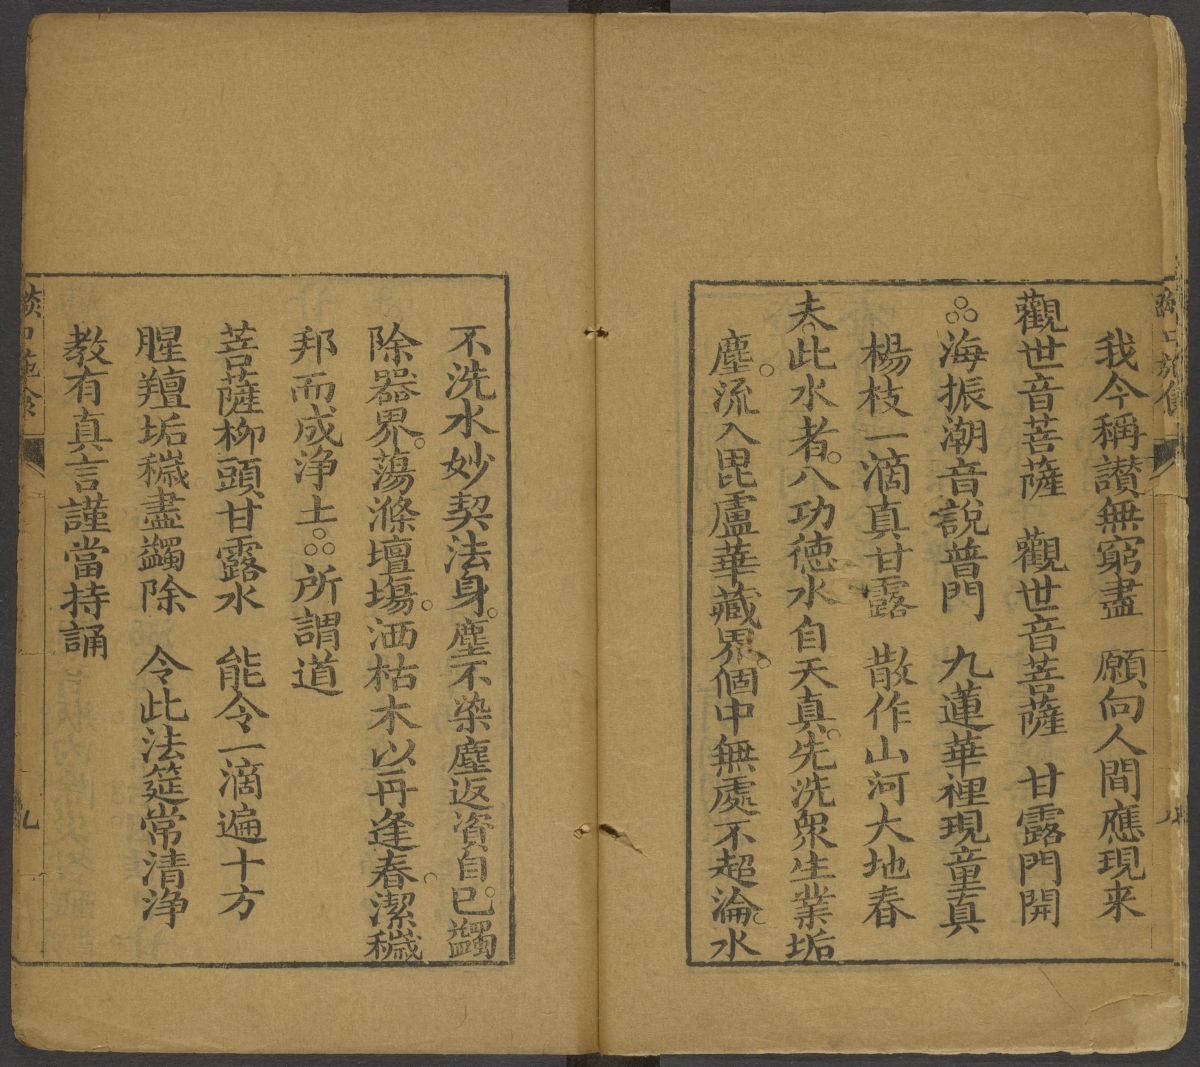 我今稱讃無窮盡　願向人間應現来
觀世音菩薩　觀世音菩薩　甘露門開
海振潮音說普門　九蓮華裡現童真
楊枝一滴真甘露　散作山河大地春
夫此水者。八功德水自天真。先洗衆生業垢
塵。流入毘盧華藏界。個中無處不超淪。水
不洗水妙契法身。塵不染塵返資自己。蠲
除器界。蕩滌壇場。洒枯木以再逢春。潔穢
邦而成浄土。所謂道
菩薩柳頭甘露水　能令一滴遍十方
腥羶垢穢盡蠲除　令此法筵常清浄
教有真言謹當持誦
九